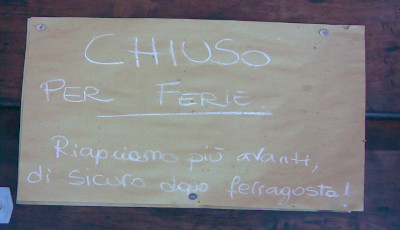 CHIUSO
PER FERIE
Riapriamo più avanti,
di sicuro dopo ferragosto!